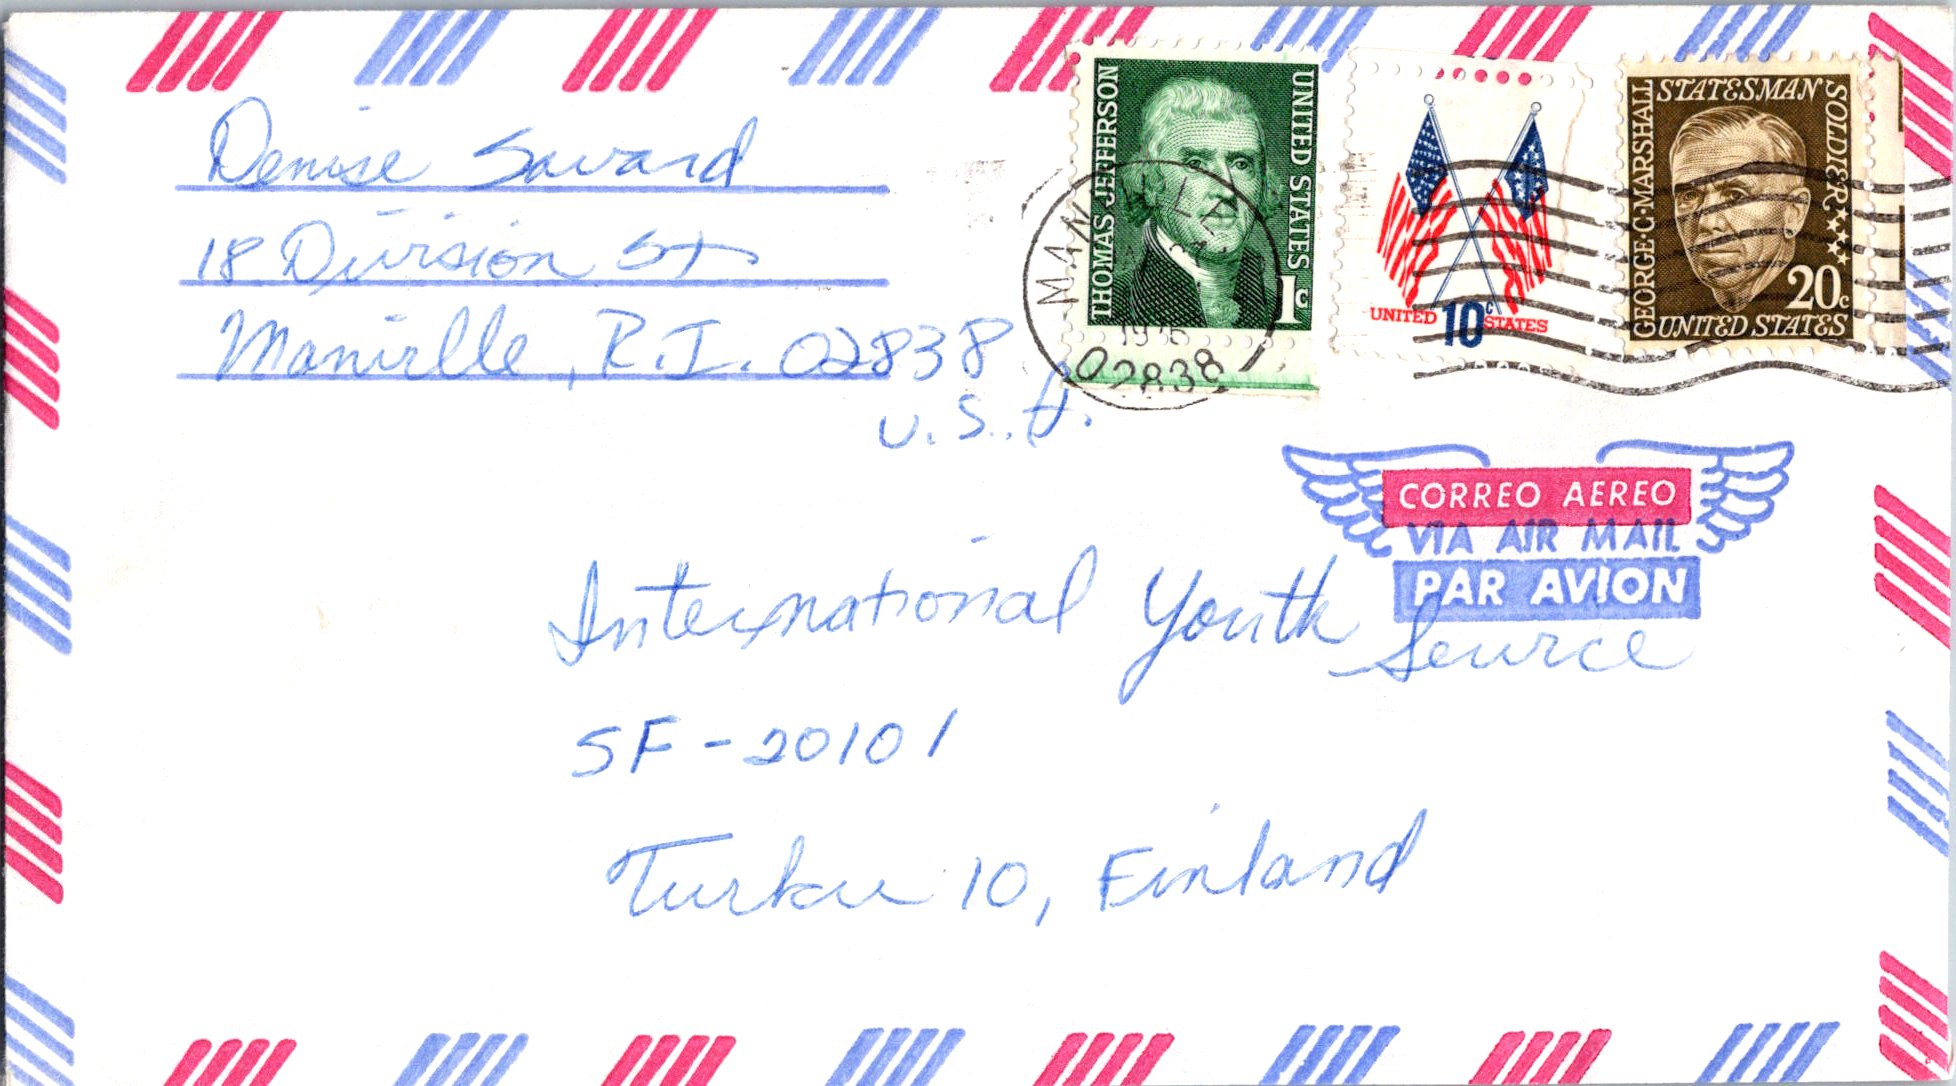 Denise Savard
18 Division St
Manville, R.I. 02838
U.S.A.
THOMAS JEFFERSON
UNITED STATES
1c
MANVILLE
02838
UNITED 10c STATES
GEORGE·C·MARSHALL
STATESMAN SOLDIER
20c
UNITED STATES
CORREO AEREO
VIA AIR MAIL
PAR AVION
International Youth Serurce
SF-20101
Turku 10, Finland